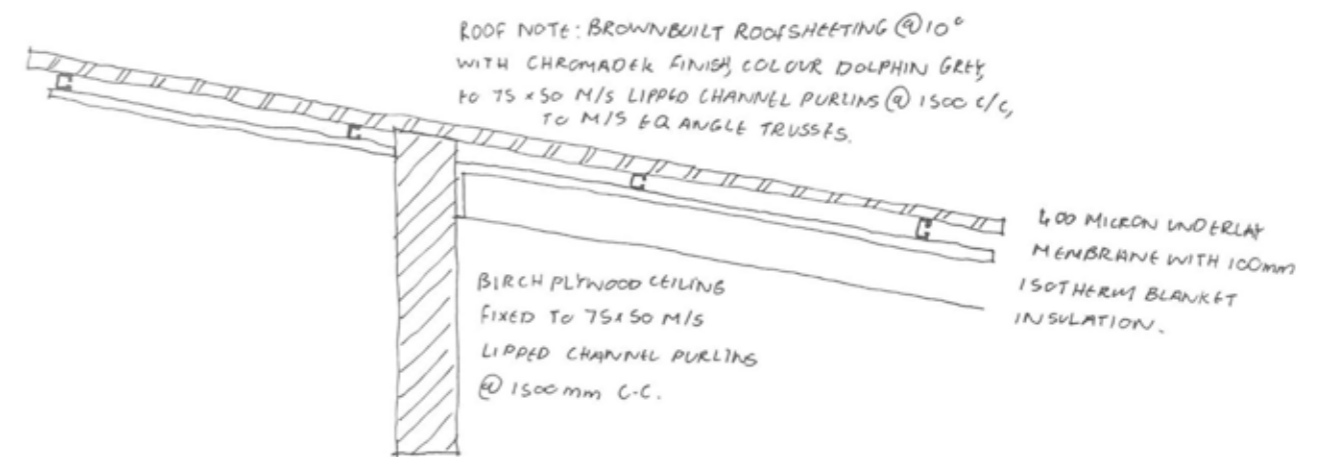 ROOF NOTE: BROWNBUILT ROOFSHEETING @ 10°
WITH CHROMADEK FINISH, COLOUR DOLPHIN GREY,
to 75 x 50 M/S LIPPED CHANNEL PURLINS @ 1500 C/C,
TO M/S EQ ANGLE TRUSSES.
400 MICRON UNDERLAY
MEMBRANE WITH 100mm
ISOTHERM BLANKET
INSULATION.
BIRCH PLYWOOD CEILING
FIXED TO 75x50 M/S
LIPPED CHANNEL PURLINS
@ 1500 mm C-C.